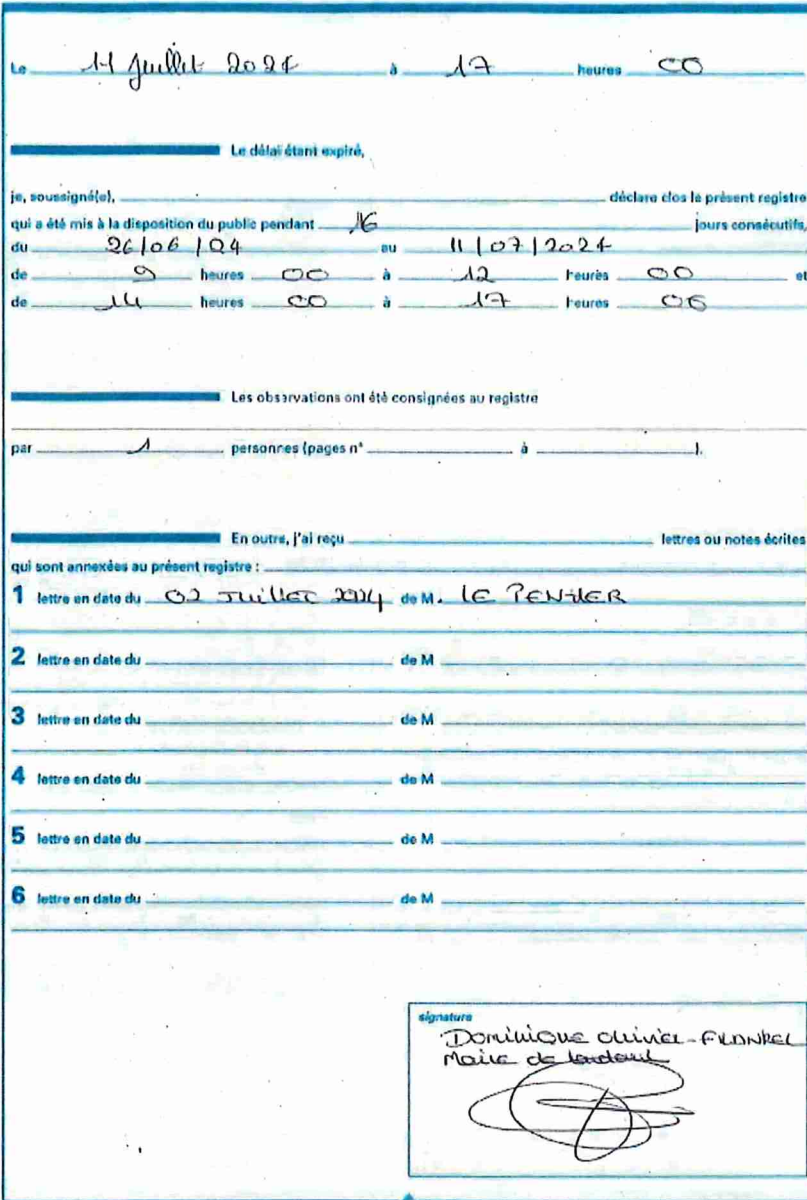 Le 11 Juillet 2024 à 17 heures 00
Le délai étant expiré,
je, soussigné(e), déclare clos le présent registre
qui a été mis à la disposition du public pendant 16 jours consécutifs,
du 26/06/24 au 11/07/2024
de 9 heures 00 à 12 heures 00 et
de 14 heures 00 à 17 heures 00
Les observations ont été consignées au registre
par 1 personnes (pages n° à ).
En outre, j'ai reçu lettres ou notes écrites
qui sont annexées au présent registre :
1 lettre en date du 02 Juillet 2024 de M. LE
2 lettre en date du de M
3 lettre en date du de M
4 lettre en date du de M
5 lettre en date du de M
6 lettre en date du de M
signature
Dominique
Maire de